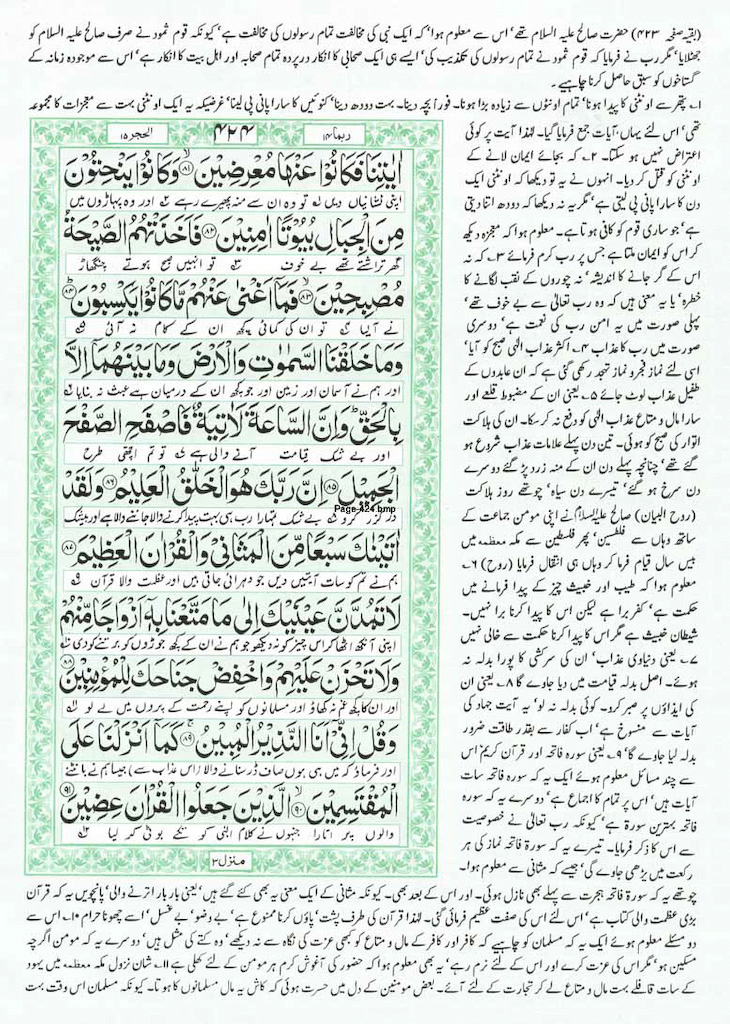 (بقیہ صفحہ ۴۲۳) حضرت صالح علیہ السلام تھے' اس سے معلوم ہوا' کہ ایک نبی کی مخالفت تمام رسولوں کی مخالفت ہے' کیونکہ قوم ثمود نے صرف صالح علیہ السلام کو
جھٹلایا' مگر رب نے فرمایا کہ قوم ثمود نے تمام رسولوں کی تکذیب کی' ایسے ہی ایک صحابی کا انکار در پردہ تمام صحابہ اور اہل بیت کا انکار ہے' اس سے موجودہ زمانہ کے
گستاخوں کو سبق حاصل کرنا چاہیے۔
۱۔ پتھر سے اونٹنی کا پیدا ہونا' تمام اونٹوں سے زیادہ بڑا ہونا۔ فوراً بچہ دینا۔ بہت دودھ دینا' کنوئیں کا سارا پانی پی لینا' غرضیکہ یہ ایک اونٹنی بہت سے معجزات کا مجموعہ
تھی' اس لئے یہاں' آیات جمع فرمایا گیا۔ لہٰذا آیت پر کوئی
اعتراض نہیں ہو سکتا۔ ۲۔ کہ بجائے ایمان لانے کے
اونٹنی کو قتل کر دیا۔ انہوں نے یہ تو دیکھا کہ اونٹنی ایک
دن کا سارا پانی پی لیتی ہے' مگر یہ نہ دیکھا کہ دودھ اتنا دیتی
ہے' جو ساری قوم کو کافی ہوتا ہے۔ معلوم ہوا کہ معجزہ دیکھ
کر اس کو ایمان ملتا ہے جس پر رب کرم فرمائے ۳۔ کہ نہ
اس کے گر جانے کا اندیشہ' نہ چوروں کے نقب لگانے کا
خطرہ' یا یہ معنی ہیں کہ وہ رب تعالیٰ سے بے خوف تھے'
پہلی صورت میں یہ امن رب کی نعمت ہے' دوسری
صورت میں رب کا عذاب ۴۔ اکثر عذاب الٰہی صبح کو آیا'
اسی لئے نماز فجر و نماز تہجد رکھی گئی ہے کہ ان عابدوں کے
طفیل عذاب لوٹ جائے ۵۔ یعنی ان کے مضبوط قلعے اور
سارا مال و متاع عذاب الٰہی کو دفع نہ کر سکا۔ ان کی ہلاکت
اتوار کی صبح کو ہوئی۔ تین دن پہلے علامات عذاب شروع ہو
گئے تھے' چنانچہ پہلے دن ان کے منہ زرد پڑ گئے دوسرے
دن سرخ ہو گئے' تیسرے دن سیاہ' چوتھے روز ہلاکت
(روح البیان) صالح علیہ السلام نے اپنی مومن جماعت کے
ساتھ وہاں سے فلسطین' پھر فلسطین سے مکہ معظمہ میں
بیس سال قیام فرما کر وہاں ہی انتقال فرمایا (روح) ۶۔
معلوم ہوا کہ طیب اور خبیث چیز کے پیدا فرمانے میں
حکمت ہے' کفر برا ہے لیکن اس کا پیدا کرنا برا نہیں۔
شیطان خبیث ہے مگر اس کا پیدا کرنا حکمت سے خالی نہیں
۷۔ یعنی دنیاوی عذاب' ان کی سرکشی کا پورا بدلہ نہ
ہوئے۔ اصل بدلہ قیامت میں دیا جاوے گا ۸۔ یعنی ان
کی ایذاؤں پر صبر کرو۔ کوئی بدلہ نہ لو' یہ آیت جہاد کی
آیات سے منسوخ ہے' اب کفار سے بقدر طاقت ضرور
بدلہ لیا جاوے گا' ۹۔ یعنی سورہ فاتحہ اور قرآن کریم' اس
سے چند مسائل معلوم ہوئے ایک یہ کہ سورہ فاتحہ سات
آیات ہیں' اس پر تمام کا اجماع ہے' دوسرے یہ کہ سورہ
فاتحہ بہترین سورۃ ہے' کیونکہ رب تعالیٰ نے خصوصیت
سے اس کا ذکر فرمایا۔ تیسرے یہ کہ سورہ فاتحہ نماز کی ہر
رکعت میں پڑھی جاوے گی' جیسے کہ مثانی سے معلوم ہوا۔
ربما ۱۴ ۴۲۴ الحجر ۱۵
اٰیٰتِنَا فَكَانُوْا عَنْهَا مُعْرِضِیْنَ ۝۸۱ وَكَانُوْا یَنْحِتُوْنَ
اپنی نشانیاں دیں تو وہ ان سے منہ پھیرے رہے اور وہ پہاڑوں میں
مِنَ الْجِبَالِ بُیُوْتًا اٰمِنِیْنَ ۝۸۲ فَاَخَذَتْهُمُ الصَّیْحَةُ
گھر تراشتے تھے بے خوف تو انہیں صبح ہوتے چنگھاڑ
مُصْبِحِیْنَ ۝۸۳ فَمَاۤ اَغْنٰى عَنْهُمْ مَّا كَانُوْا یَكْسِبُوْنَ ۝۸۴
نے آلیا تو ان کی کمائی کچھ ان کے کام نہ آئی
وَمَا خَلَقْنَا السَّمٰوٰتِ وَالْاَرْضَ وَمَا بَیْنَهُمَاۤ اِلَّا
اور ہم نے آسمان اور زمین اور جو کچھ ان کے درمیان ہے عبث نہ بنایا
بِالْحَقِّ ؕ وَاِنَّ السَّاعَةَ لَاٰتِیَةٌ فَاصْفَحِ الصَّفْحَ
اور بے شک قیامت آنے والی ہے تو تم اچھی طرح
الْجَمِیْلَ ۝۸۵ اِنَّ رَبَّكَ هُوَ الْخَلّٰقُ الْعَلِیْمُ ۝۸۶ وَلَقَدْ
درگزر کرو بے شک تمہارا رب ہی بہت پیدا کرنے والا جاننے والا ہے اور بیشک
Page-424.bmp
اٰتَیْنٰكَ سَبْعًا مِّنَ الْمَثَانِیْ وَالْقُرْاٰنَ الْعَظِیْمَ ۝۸۷
ہم نے تم کو سات آیتیں دیں جو دہرائی جاتی ہیں اور عظمت والا قرآن
لَا تَمُدَّنَّ عَیْنَیْكَ اِلٰى مَا مَتَّعْنَا بِهٖۤ اَزْوَاجًا مِّنْهُمْ
اپنی آنکھ اٹھا کر اس چیز کو نہ دیکھو جو ہم نے ان کے کچھ جوڑوں کو برتنے کو دی
وَلَا تَحْزَنْ عَلَیْهِمْ وَاخْفِضْ جَنَاحَكَ لِلْمُؤْمِنِیْنَ ۝۸۸
اور ان کا کچھ غم نہ کھاؤ اور مسلمانوں کو اپنے رحمت کے پروں میں لے لو
وَقُلْ اِنِّیْۤ اَنَا النَّذِیْرُ الْمُبِیْنُ ۝۸۹ كَمَاۤ اَنْزَلْنَا عَلَى
اور فرماؤ کہ میں ہی ہوں صاف ڈر سنانے والا (اس عذاب سے) جیسا ہم نے بانٹنے
الْمُقْتَسِمِیْنَ ۝۹۰ الَّذِیْنَ جَعَلُوا الْقُرْاٰنَ عِضِیْنَ ۝۹۱
والوں پر اتارا جنہوں نے کلام الٰہی کو تکے بوٹی کر لیا
منزل ۳
چوتھے یہ کہ سورۃ فاتحہ ہجرت سے پہلے بھی نازل ہوئی۔ اور اس کے بعد بھی۔ کیونکہ مثانی کے ایک معنی یہ بھی کئے گئے ہیں' یعنی بار بار اترنے والی' پانچویں یہ کہ قرآن
بڑی عظمت والی کتاب ہے' اس لئے اس کی صفت عظیم فرمائی گئی۔ لہٰذا قرآن کی طرف پشت' پاؤں کرنا ممنوع ہے' بے وضو' بے غسل' اسے چھونا حرام ۱۰۔ اس سے
دو مسئلے معلوم ہوئے ایک یہ کہ مسلمان کو چاہیے کہ کافر اور کافر کے مال و متاع کو کبھی عزت کی نگاہ سے نہ دیکھے' وہ کتے کی مثل ہیں' دوسرے یہ کہ مومن اگرچہ
مسکین ہو' مگر اس کی عزت کرے اور اس کے لئے نرم رہے' یہ بھی معلوم ہوا کہ حضور کی آغوش کرم ہر مومن کے لئے کھلی ہے ۱۱۔ شان نزول مکہ معظمہ میں یہود
کے سات قافلے بہت مال و متاع لے کر تجارت کے لئے آئے۔ بعض مومنین کے دل میں حسرت ہوئی کہ کاش یہ مال مسلمانوں کا ہوتا۔ کیونکہ مسلمان اس وقت بہت